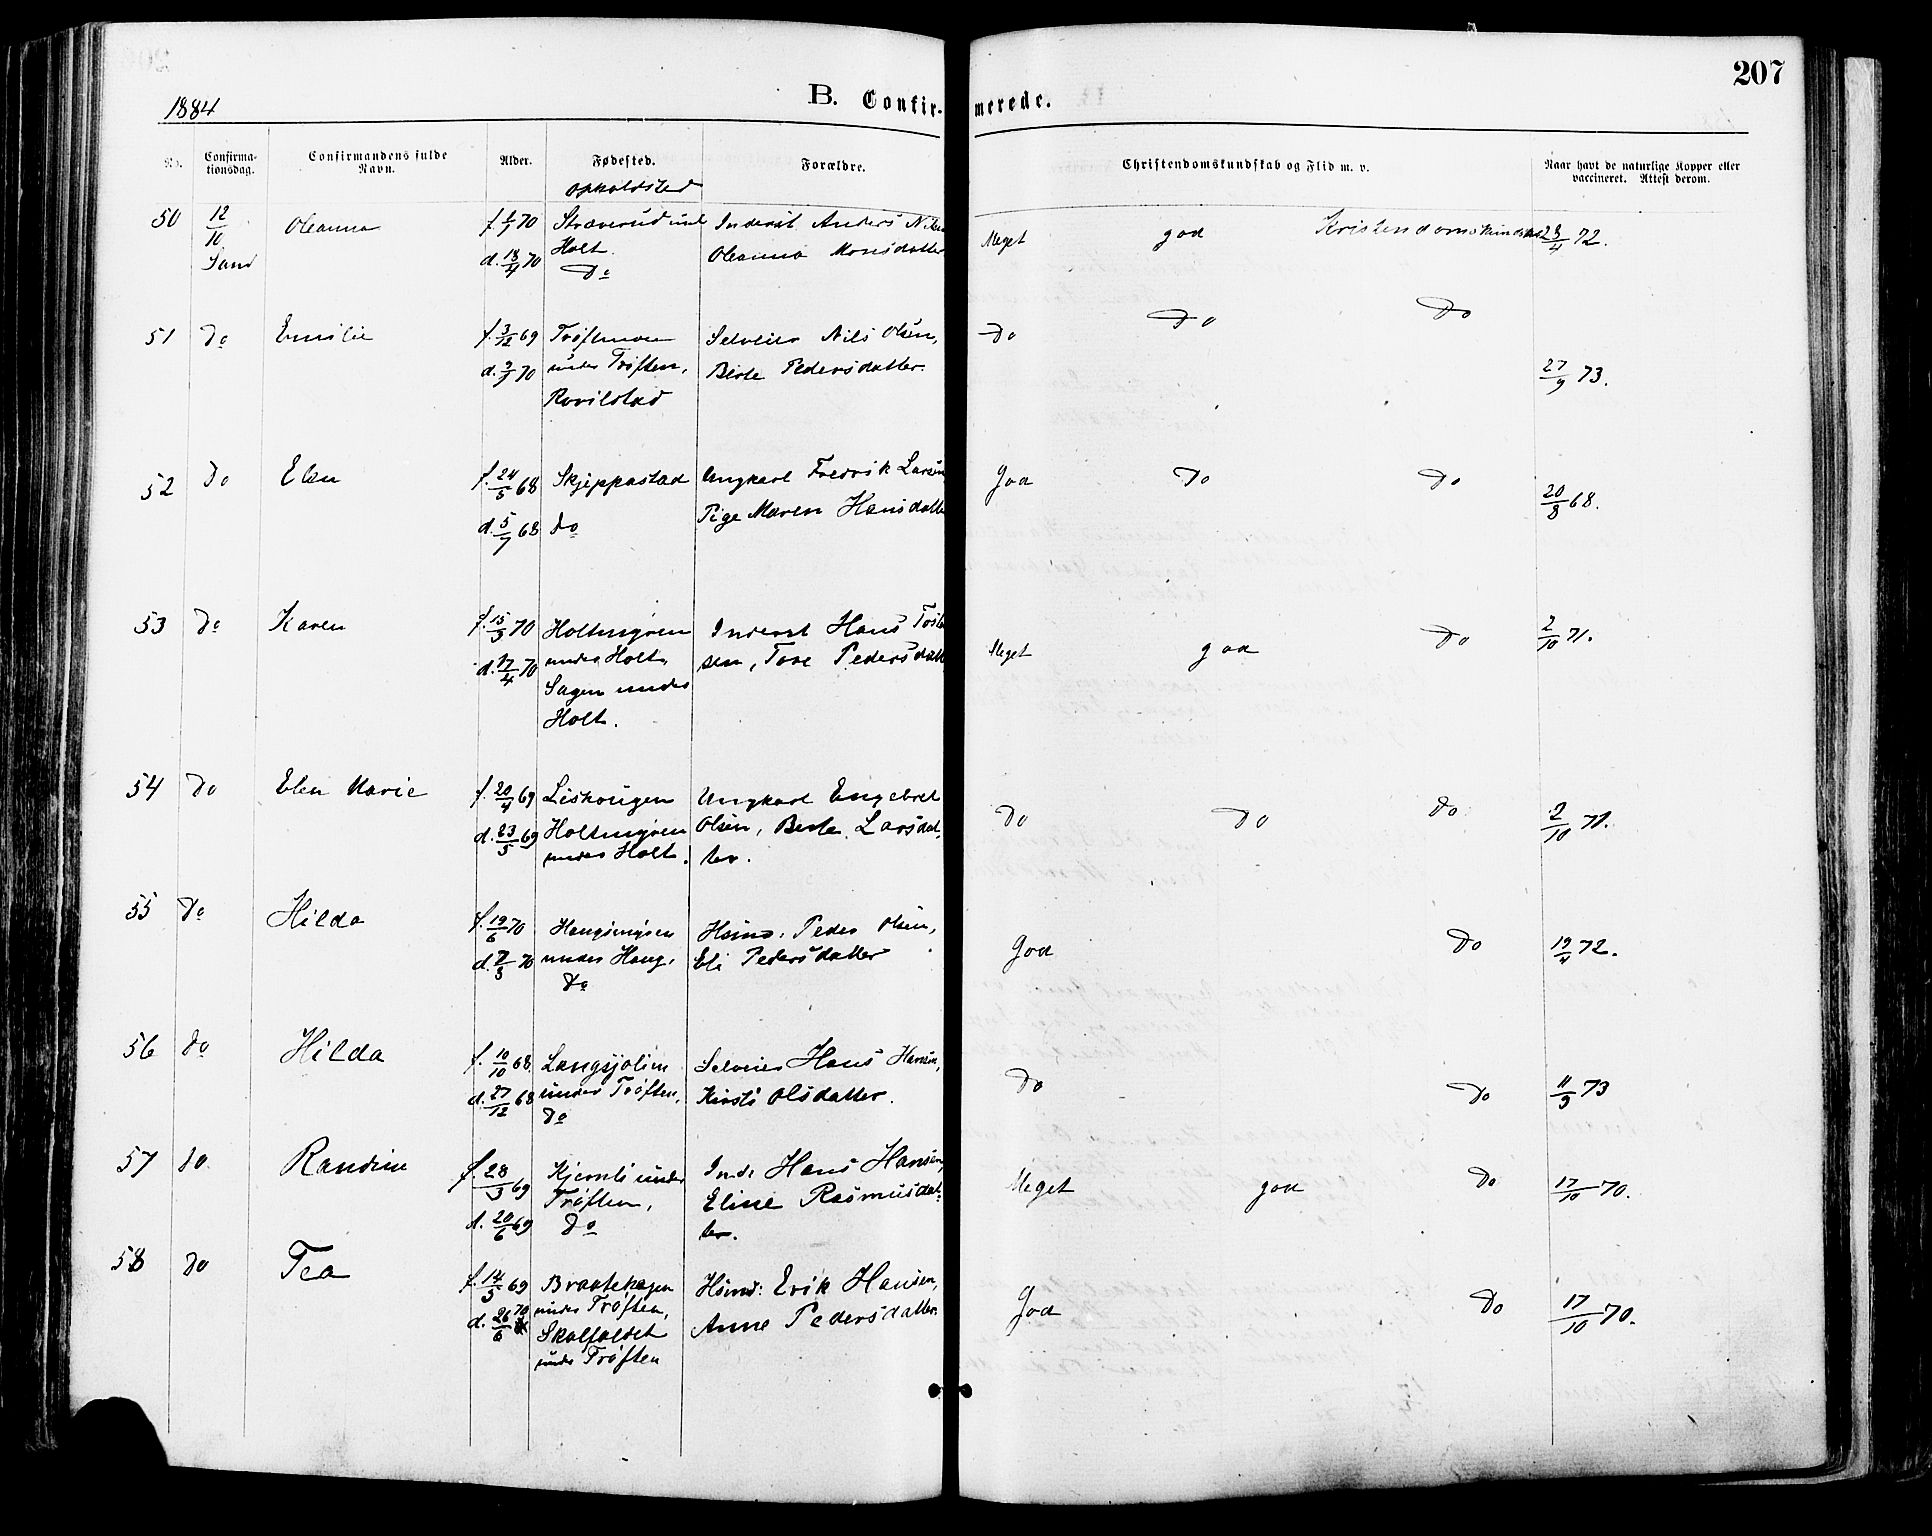 207
1884
B. Confir-
merede.
No.
Confirma-
tionsdag.
Confirmandens fulde
Navn.
Alder.
Fødested.
Opholdsted
Forældre.
Christendomskundskab og Flid m. v.
Naar havt de naturlige Kopper eller
vaccineret. Attest derom.
50 12/10 Oleanna f. 1/1 70 Inderst Anders
Sand Holt. Oleanna Monsdatter
d. 18/4 70 Do
Meget god Kristendomskundskab 23/4 72.
51 Do Emilie f. 3/12 69 Selveier Nils Olsen,
under Trøften, Berte Pedersdatter.
Rovilstad
Do Do Do 27/9 73.
52 Do Elen f. 24/5 68 Skjeppastad Ungkarl Fredrik Larsen
d. 5/7 68 do Pige Maren Hansdatter
God Do Do 20/8 68.
53 Do Karen f. 15/3 70 Holtmyren Inderst Hans
d. 17/4 70 under Holt, sen, Tore Pedersdatter
Sagen under
Holt.
Meget god Do 2/10 71.
54 Do Elen Marie f. 20/4 69 Ungkarl Engebret
d. 23/5 69 Holtmyren Olsen, Berte Larsdat-
under Holt. ter.
Do Do Do 2/10 71.
55 Do Hilda f. 19/6 70 Haugsmyren Husmd. Peder Olsen,
under Haug, Eli Pedersdatter
Do
God Do 19/4 72.
56 Do Hilda f. 10/10 68. Selveier Hans Hansen,
d. 27/12 68 under Trøften, Kirsti Olsdatter.
Do
Do Do 11/9 73
57 do. Randine f. 28/3 69 Kjernli under Ind. Hans Hansen,
Trøften, Eline Rasmusdat-
d. 20/6 69 Do ter.
Meget god Do 17/10 70.
58 Do Tea f. 14/5 69 Braatehagen Husmd. Erik Hansen,
under Trøften,
d. 26/6 70 Anne Pedersdatter.
under Trøften
God Do 17/10 70.